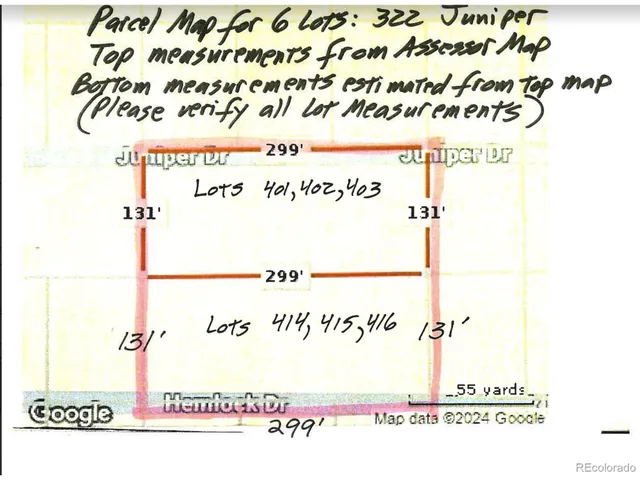 Parcel Map for 6 Lots: 322 Juniper
Top measurements from Assessor Map
Bottom measurements estimated from top map
(Please verify all Lot Measurements)
299'
Juniper Dr Juniper Dr
Lots 401, 402, 403
131' 131'
299'
Lots 414, 415, 416
131' 131'
55 yards
Hemlock Dr
Google
Map data ©2024 Google
299'
REcolorado